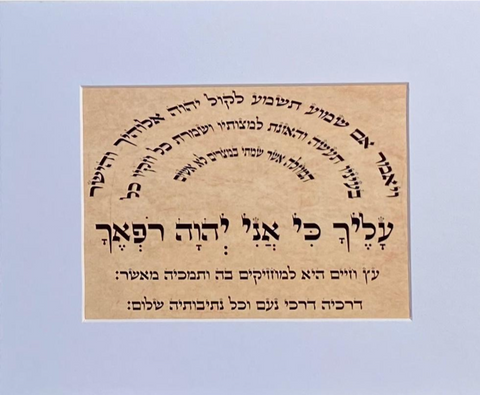 ויאמר אם שמוע תשמע לקול יהוה אלוהיך והישר
בעיניו תעשה והאזנת למצותיו ושמרת כל חקיו כל
המחלה אשר שמתי במצרים לא אשים
עָלֶיךָ כִּי אֲנִי יְהוָה רֹפְאֶךָ
עץ חיים היא למחזיקים בה ותמכיה מאשר:
דרכיה דרכי נעם וכל נתיבותיה שלום: